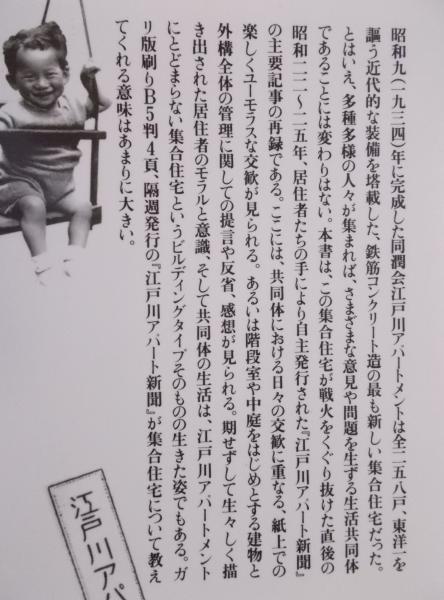 昭和九(一九三四)年に完成した同潤会江戸川アパートメントは全二五八戸、東洋一を
謳う近代的な装備を搭載した、鉄筋コンクリート造の最も新しい集合住宅だった。
とはいえ、多種多様の人々が集まれば、さまざまな意見や問題を生ずる生活共同体
であることには変わりはない。本書は、この集合住宅が戦火をくぐり抜けた直後の
昭和二二〜二五年、居住者たちの手により自主発行された『江戸川アパート新聞』
の主要記事の再録である。ここには、共同体における日々の交歓に重なる、紙上での
楽しくユーモラスな交歓が見られる。あるいは階段室や中庭をはじめとする建物と
外構全体の管理に関しての提言や反省、感想が見られる。期せずして生々しく描
き出された居住者のモラルと意識、そして共同体の生活は、江戸川アパートメント
にとどまらない集合住宅というビルディングタイプそのものの生きた姿でもある。ガ
リ版刷りB5判4頁、隔週発行の『江戸川アパート新聞』が集合住宅について教え
てくれる意味はあまりに大きい。
江戸川アパ